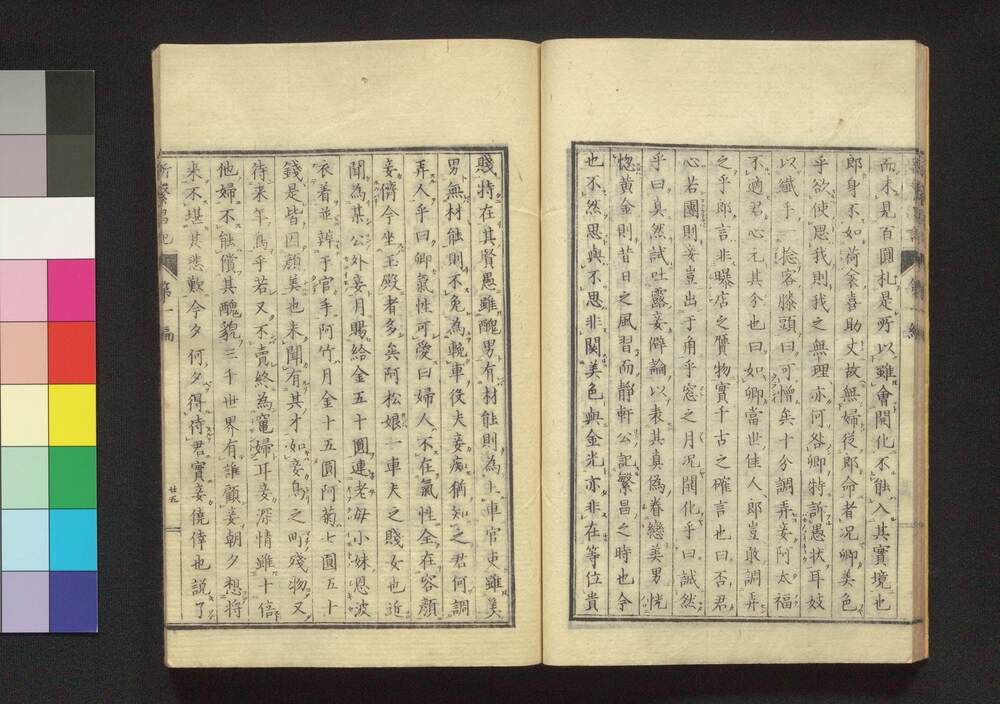 而未見百圓札是所以雖會開化不能入其實境也
郎身不如荷衾喜助丈故無婦從郎命者況卿美色
乎欲使思我則我之無理亦何咎卿特訴愚状耳妓
以纖手一捻客膝頭曰可憎矣十分調弄妾阿太福
不適君心元其分也曰如卿當世佳人郎豈敢調弄
之乎郎言非曝店之贋物實千古之確言也曰否君
心若團則妾豈出于角乎窓之月況開化乎曰誠然
乎曰真然試吐露妾僻論以表其真偽眷戀美男恍
惚黄金則昔日之風習而靜軒公記繁昌之時也今
也不然思與不思非関美色與金光亦非在等位貴
賤特在其賢愚雖醜男有材能則為上車官吏雖美
男無材能則不免為輓車役夫妾痴猶知之君何調
弄人乎曰卿氣性可愛曰婦人不在氣性全在容顔
妾儕今坐玉殿者多矣阿松娘一車夫之賤女也近
聞為某公外妾月賜給金五十圓連老母小妹恩波
衣着並辨于官手阿竹月金十五圓阿菊七圓五十
錢是皆因顔美也未聞有其才如妾鳥之町殘物又
待来年鳥乎若又不賣終為竃婦耳妾深情雖十倍
他婦不能償其醜貌三千世界有誰顧妾朝夕想将
来不堪其悲歎今夕何夕得侍君實妾僥倖也説了
新繁昌記
第一編
廿五